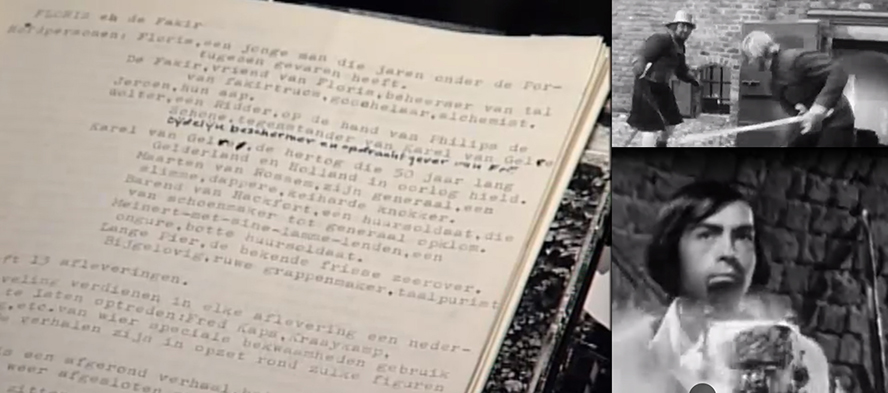 FLORIS en de Fakir
Hoofdpersonen: Floris, een jonge man die jaren onder de Por-
tugezen gevaren heeft.
De Fakir, vriend van Floris, beheerser van tal
van fakirtrucs, goochelaar, alchemist.
Jeroen, hun aap.
Wolter, een Ridder, op de hand van Philips de
Schone, tegenstander van Karel van Gelre
tijdelijk beschermer en opdrachtgever van
Karel van Gelre, de hertog die 50 jaar lang
Gelderland en Holland in oorlog hield.
Maarten van Rossem, zijn generaal, een
slimme, dappere, keiharde knokker.
Barend van Hackfort, een huursoldaat, die
van schoenmaker tot generaal opklom.
Meinert-met-sine-lamme-lenden, een
ongure, botte huursoldaat.
Lange Pier, de bekende friese zeerover.
Bijgelovig, ruwe grappenmaker, taalpurist
ft 13 afleveringen.
veling verdienen in elke aflevering een neder-
te laten optreden: Fred Kaps, Kraaykamp,
g, etc. van wier speciale bekwaamheden gebruik
verhalen zijn in opzet rond zulke figuren
s een afgerond verhaal,
weer afgesloten